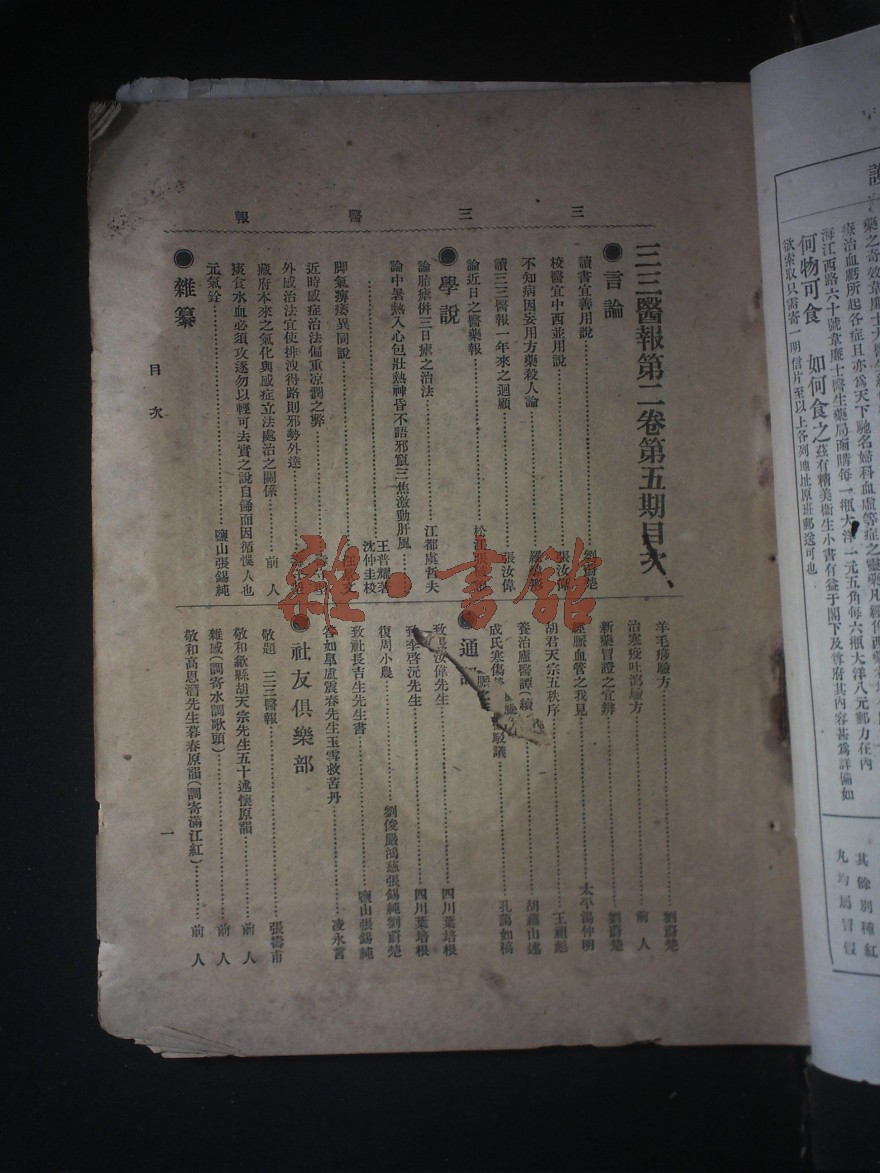 三三醫報
三三醫報第二卷第五期目次
●言論
讀書宜善用說……劉蔚楚
校醫宜中西並用說……張汝偉
不知病因妄用方藥殺人論……
讀三三醫報一年來之迴顧……張汝偉
論近日之醫藥報……松江張
●學說
論胎瘧併三日瘧之治法……江都虞哲夫
論中暑熱入心包壯熱神昏不語邪竄三焦激動肝風……
……王普耀著
沈仲圭校
脚氣痹痿異同說……文
近時感症治法偏重凉潤之弊……
外感治法宜使排洩得路則邪勢外達……
藏府本來之氣化與感症立法處治之關係……前人
痰食水血必須攻逐勿以輕可去實之說自餙而因循悞人也
元氣詮……鹽山張錫純
●雜纂
羊毛痧驗方……劉蔚楚
治寒疫吐瀉驗方……前人
新藥冒證之宜辨……劉蔚楚
經脈血管之我見……太平湯仲明
胡君天宗五秩序……王頑彪
養治廬醫譚(續)……胡蘊山述
成氏寒傷駁議……孔藹如稿
●通
致汝偉先生……四川葉培根
致李啓沅先生……四川葉培根
復周小農……劉俊嚴鴻慈張錫純劉蔚楚
致社長吉生先生書……鹽山張錫純
答如臯盧震春先生玉雪救苦丹……凌永言
●社友俱樂部
敬題 三三醫報……張壽甫
敬和歙縣胡天宗先生五十述懷原韻……前人
雜感(調寄水調歌頭)……前人
敬和高思潛先生暮春原韻(調寄滿江紅)……前人
目次
一
雜·書館
療治血虧所起各症且亦為天下馳名婦科血虛等症之靈藥凡經
海江西路六十號韋廉士醫生藥局函購每一瓶大洋一元五角每六瓶大洋八元郵力在內
何物可食 如何食之茲有精美衛生小書有益于閣下及尊府其內容甚為詳備如
欲索取只需寄一明信片至以上各列地址原班郵送可也
其餘別種紅
丸均屬冒假